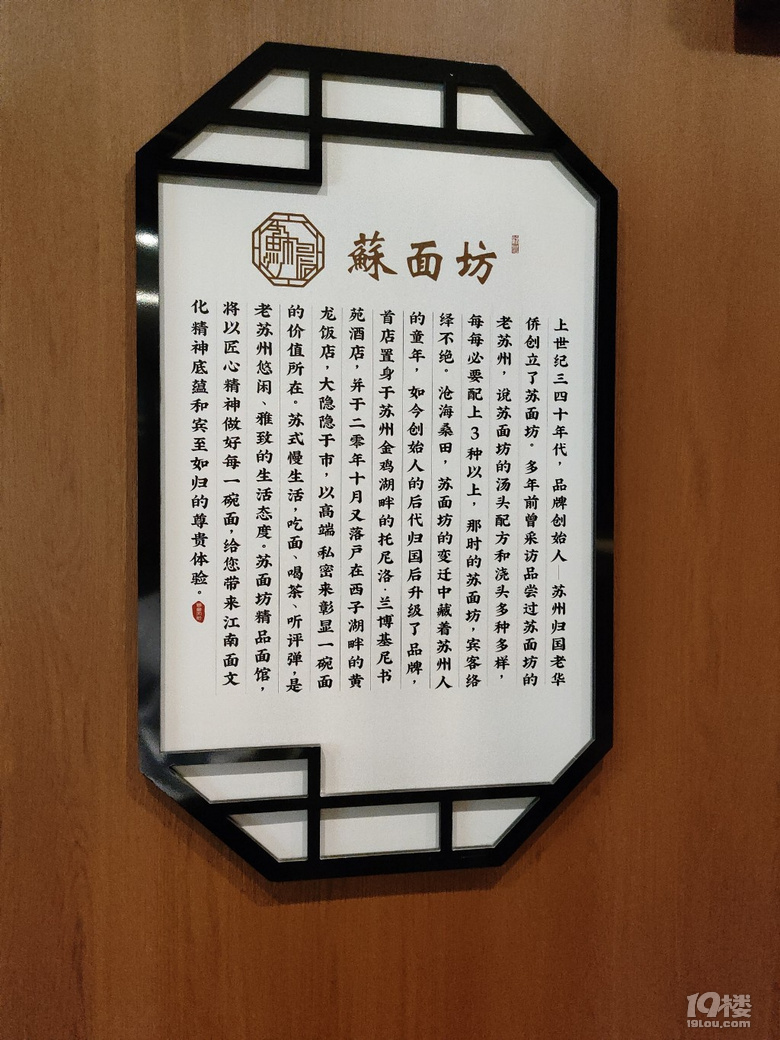 蘇面坊
上世纪三四十年代，品牌创始人——苏州归国老华
侨创立了苏面坊。多年前曾采访品尝过苏面坊的
老苏州，说苏面坊的汤头配方和浇头多种多样，
每每必要配上3种以上，那时的苏面坊，宾客络
绎不绝。沧海桑田，苏面坊的变迁中藏着苏州人
的童年，如今创始人的后代归国后升级了品牌，
首店置身于苏州金鸡湖畔的托尼洛·兰博基尼书
苑酒店，并于二零年十月又落户在西子湖畔的黄
龙饭店，大隐隐于市，以高端私密来彰显一碗面
的价值所在。苏式慢生活，吃面、喝茶、听评弹，是
老苏州悠闲、雅致的生活态度。苏面坊精品面馆，
将以匠心精神做好每一碗面，给您带来江南面文
化精神底蕴和宾至如归的尊贵体验。
19楼
19lou.com